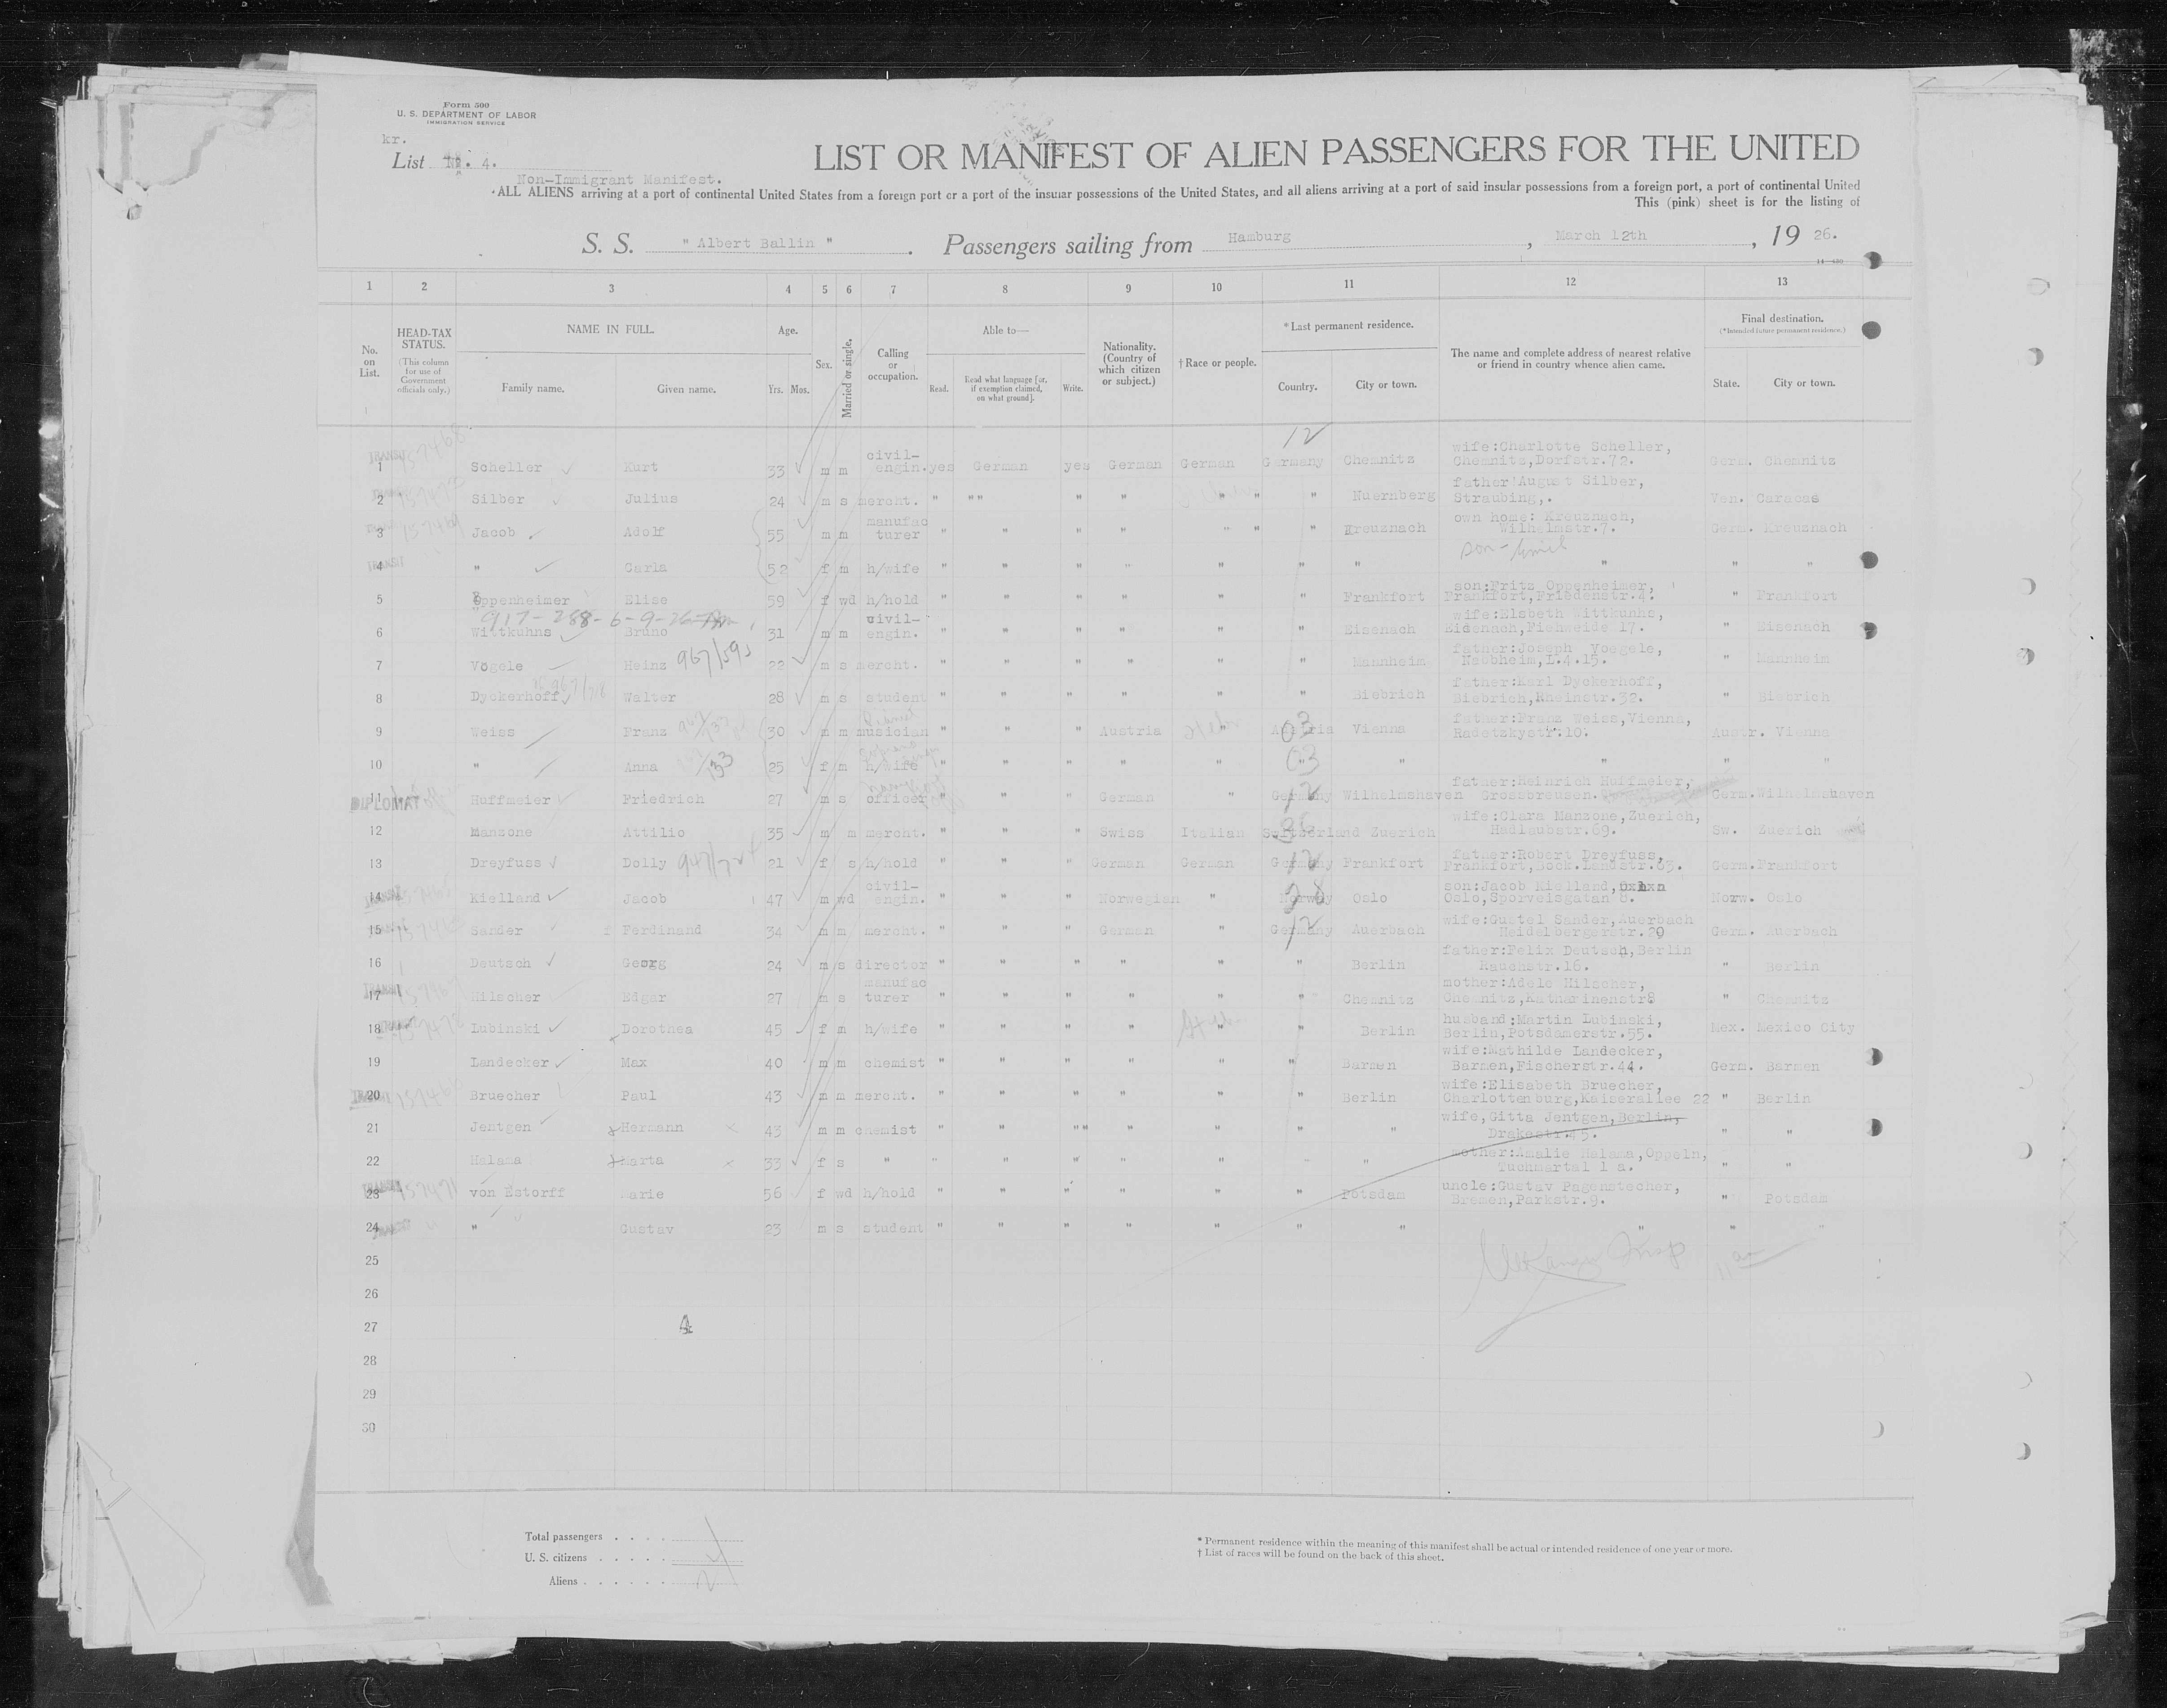 Form 500
U. S. DEPARTMENT OF LABOR
IMMIGRATION SERVICE
kr.
List 4.
Non-Immigrant Manifest.
LIST OR MANIFEST OF ALIEN PASSENGERS FOR THE UNITED
ALL ALIENS arriving at a port of continental United States from a foreign port or a port of the insular possessions of the United States, and all aliens arriving at a port of said insular possessions from a foreign port, a port of continental United
This (pink) sheet is for the listing of
S. S. " Albert Ballin " . Passengers sailing from Hamburg , March 12th , 19 26.
1 2 3 4 5 6 7 8 9 10 11 12 13
No. on List.
HEAD-TAX STATUS.
(This column for use of Government officials only.)
NAME IN FULL.
Family name. Given name.
Age.
Yrs. Mos.
Sex.
Married or single.
Calling or occupation.
Able to—
Read. Read what language [or, if exemption claimed, on what ground]. Write.
Nationality. (Country of which citizen or subject.)
† Race or people.
* Last permanent residence.
Country. City or town.
The name and complete address of nearest relative or friend in country whence alien came.
Final destination.
(* Intended future permanent residence.)
State. City or town.
12
1 Scheller Kurt 33 m m civil-engin. yes German yes German German Germany Chemnitz wife:Charlotte Scheller, Chemnitz,Dorfstr.72. Germ. Chemnitz
2 Silber Julius 24 m s mercht. " "" " " " " " Nuernberg father:August Silber, Straubing,. Ven. Caracas
3 Jacob Adolf 55 m m manufacturer " " " " " " " Kreuznach own home: Kreuznach, Wilhelmstr.7. Germ. Kreuznach
son-Emil
4 " Carla 52 f m h/wife " " " " " " " " " "
5 Oppenheimer Elise 59 f wd h/hold " " " " " " Frankfort son:Fritz Oppenheimer, Frankfort,Friedenstr.4. " Frankfort
917-288-6-9-36
6 Wittkuhns Bruno 31 m m civil-engin. " " " " " " Eisenach wife:Elsbeth Wittkunhs, Eisenach,Fichweide 17. " Eisenach
7 Vögele Heinz 967/595 22 m s mercht. " " " " " " Mannheim father:Joseph Voegele, L.4.15. " Mannheim
8 Dyckerhoff Walter 28 m s student " " " " " " Biebrich father:Karl Dyckerhoff, Biebrich,Rheinstr.32. " Biebrich
9 Weiss Franz 30 m m musician " " " Austria " Austria 03 Vienna father:Franz Weiss,Vienna, Radetzkystr.10. Austr. Vienna
10 " Anna 133 25 f m h/wife " " " " " " 03 " " " "
DIPLOMAT
11 Hoffmeier Friedrich 27 m s officer " " " German " Germany 12 Wilhelmshaven father:Heinrich Hoffmeier, Grossbreusen. Germ. Wilhelmshaven
12 Manzone Attilio 35 m m mercht. " " " Swiss Italian Switserland Zuerich wife:Clara Manzone,Zuerich, Hadlaubstr.69. Sw. Zuerich
13 Dreyfuss Dolly 21 f s h/hold " " " German German Germany 12 Frankfort father:Robert Dreyfuss, Frankfort,Bock.Landstr.63. Germ. Frankfort
14 Kielland Jacob 47 m wd civil-engin. " " " Norwegian " Norway 28 Oslo son:Jacob Kielland, Oslo,Sporveisgatan 8. Norw. Oslo
15 Sander Ferdinand 34 m m mercht. " " " German " Germany 12 Auerbach wife:Gustel Sander,Auerbach Heidelbergerstr.29 Germ. Auerbach
16 Deutsch Georg 24 m s director " " " " " " Berlin father:Felix Deutsch,Berlin Rauchstr.16. " Berlin
17 Hilscher Edgar 27 m s manufacturer " " " " " " Chemnitz mother:Adele Hilscher, Chemnitz,Katharinenstr8 " Chemnitz
18 Lubinski Dorothea 45 f m h/wife " " " " " " Berlin husband:Martin Lubinski, Berlin,Potsdamerstr.55. Mex. Mexico City
19 Landecker Max 40 m m chemist " " " " " " Barmen wife:Mathilde Landecker, Barmen,Fischerstr.44. Germ. Barmen
20 Bruecher Paul 43 m m mercht. " " " " " " Berlin wife:Elisabeth Bruecher, Charlottenburg,Kaiserallee 22 " Berlin
21 Jentgen Hermann 43 m m chemist " " "" " " " " wife,Gitta Jentgen,Berlin, Drakestr.45. " "
22 Halama Marta 33 f s " " " " " " " mother:Amalie Halama,Oppeln, Tuchmartal 1 a. " "
23 von Estorff Marie 56 f wd h/hold " " " " " " Potsdam uncle:Gustav Pagenstecher, Bremen,Parkstr.9. " Potsdam
24 " " Gustav 23 m s student " " " " " " " " " "
25
26
27 4
28
29
30
Total passengers . . . .
U. S. citizens . . . . .
Aliens . . . . . .
* Permanent residence within the meaning of this manifest shall be actual or intended residence of one year or more.
† List of races will be found on the back of this sheet.